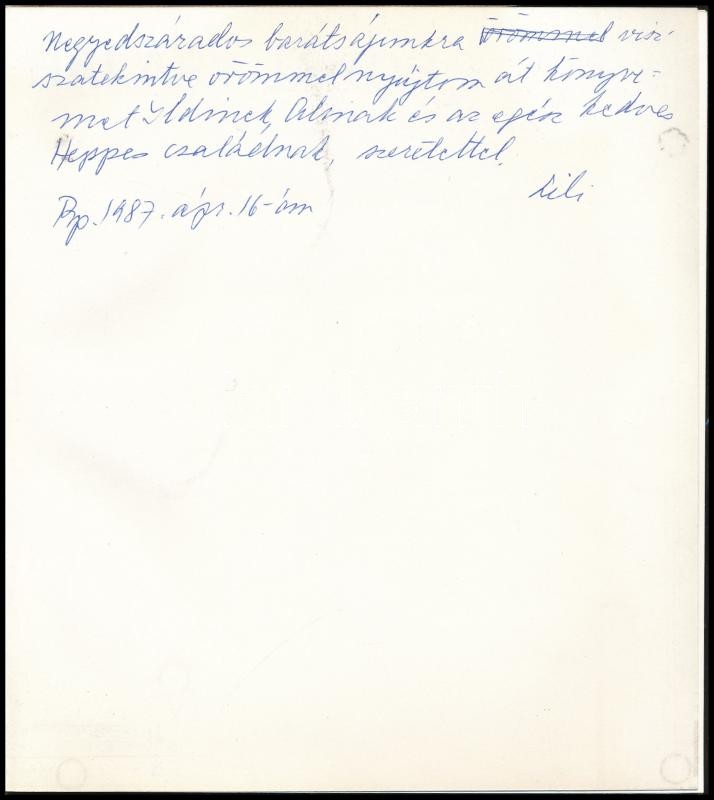 Negyedszázados barátságunkra örömmel visz-
szatekintve örömmel nyújtom át könyve-
met Ildinek, Alinak és az egész kedves
Heppes családnak, szeretettel.
Lili
Bp. 1987. ápr. 16-án